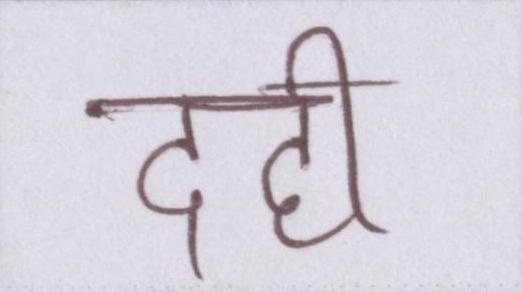 दही